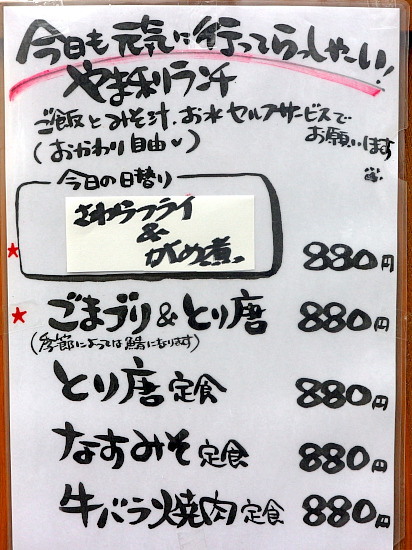 今日も元気に行ってらっしゃーい!
やま利ランチ
ご飯とみそ汁、お水セルフサービスで
お願いします
(おかわり自由♡)
今日の日替り
さわらフライ
&
がめ煮
880円
★ごまブリ&とり唐 880円
(季節によっては鯖になります)
とり唐定食 880円
なすみそ定食 880円
牛バラ焼肉定食 880円